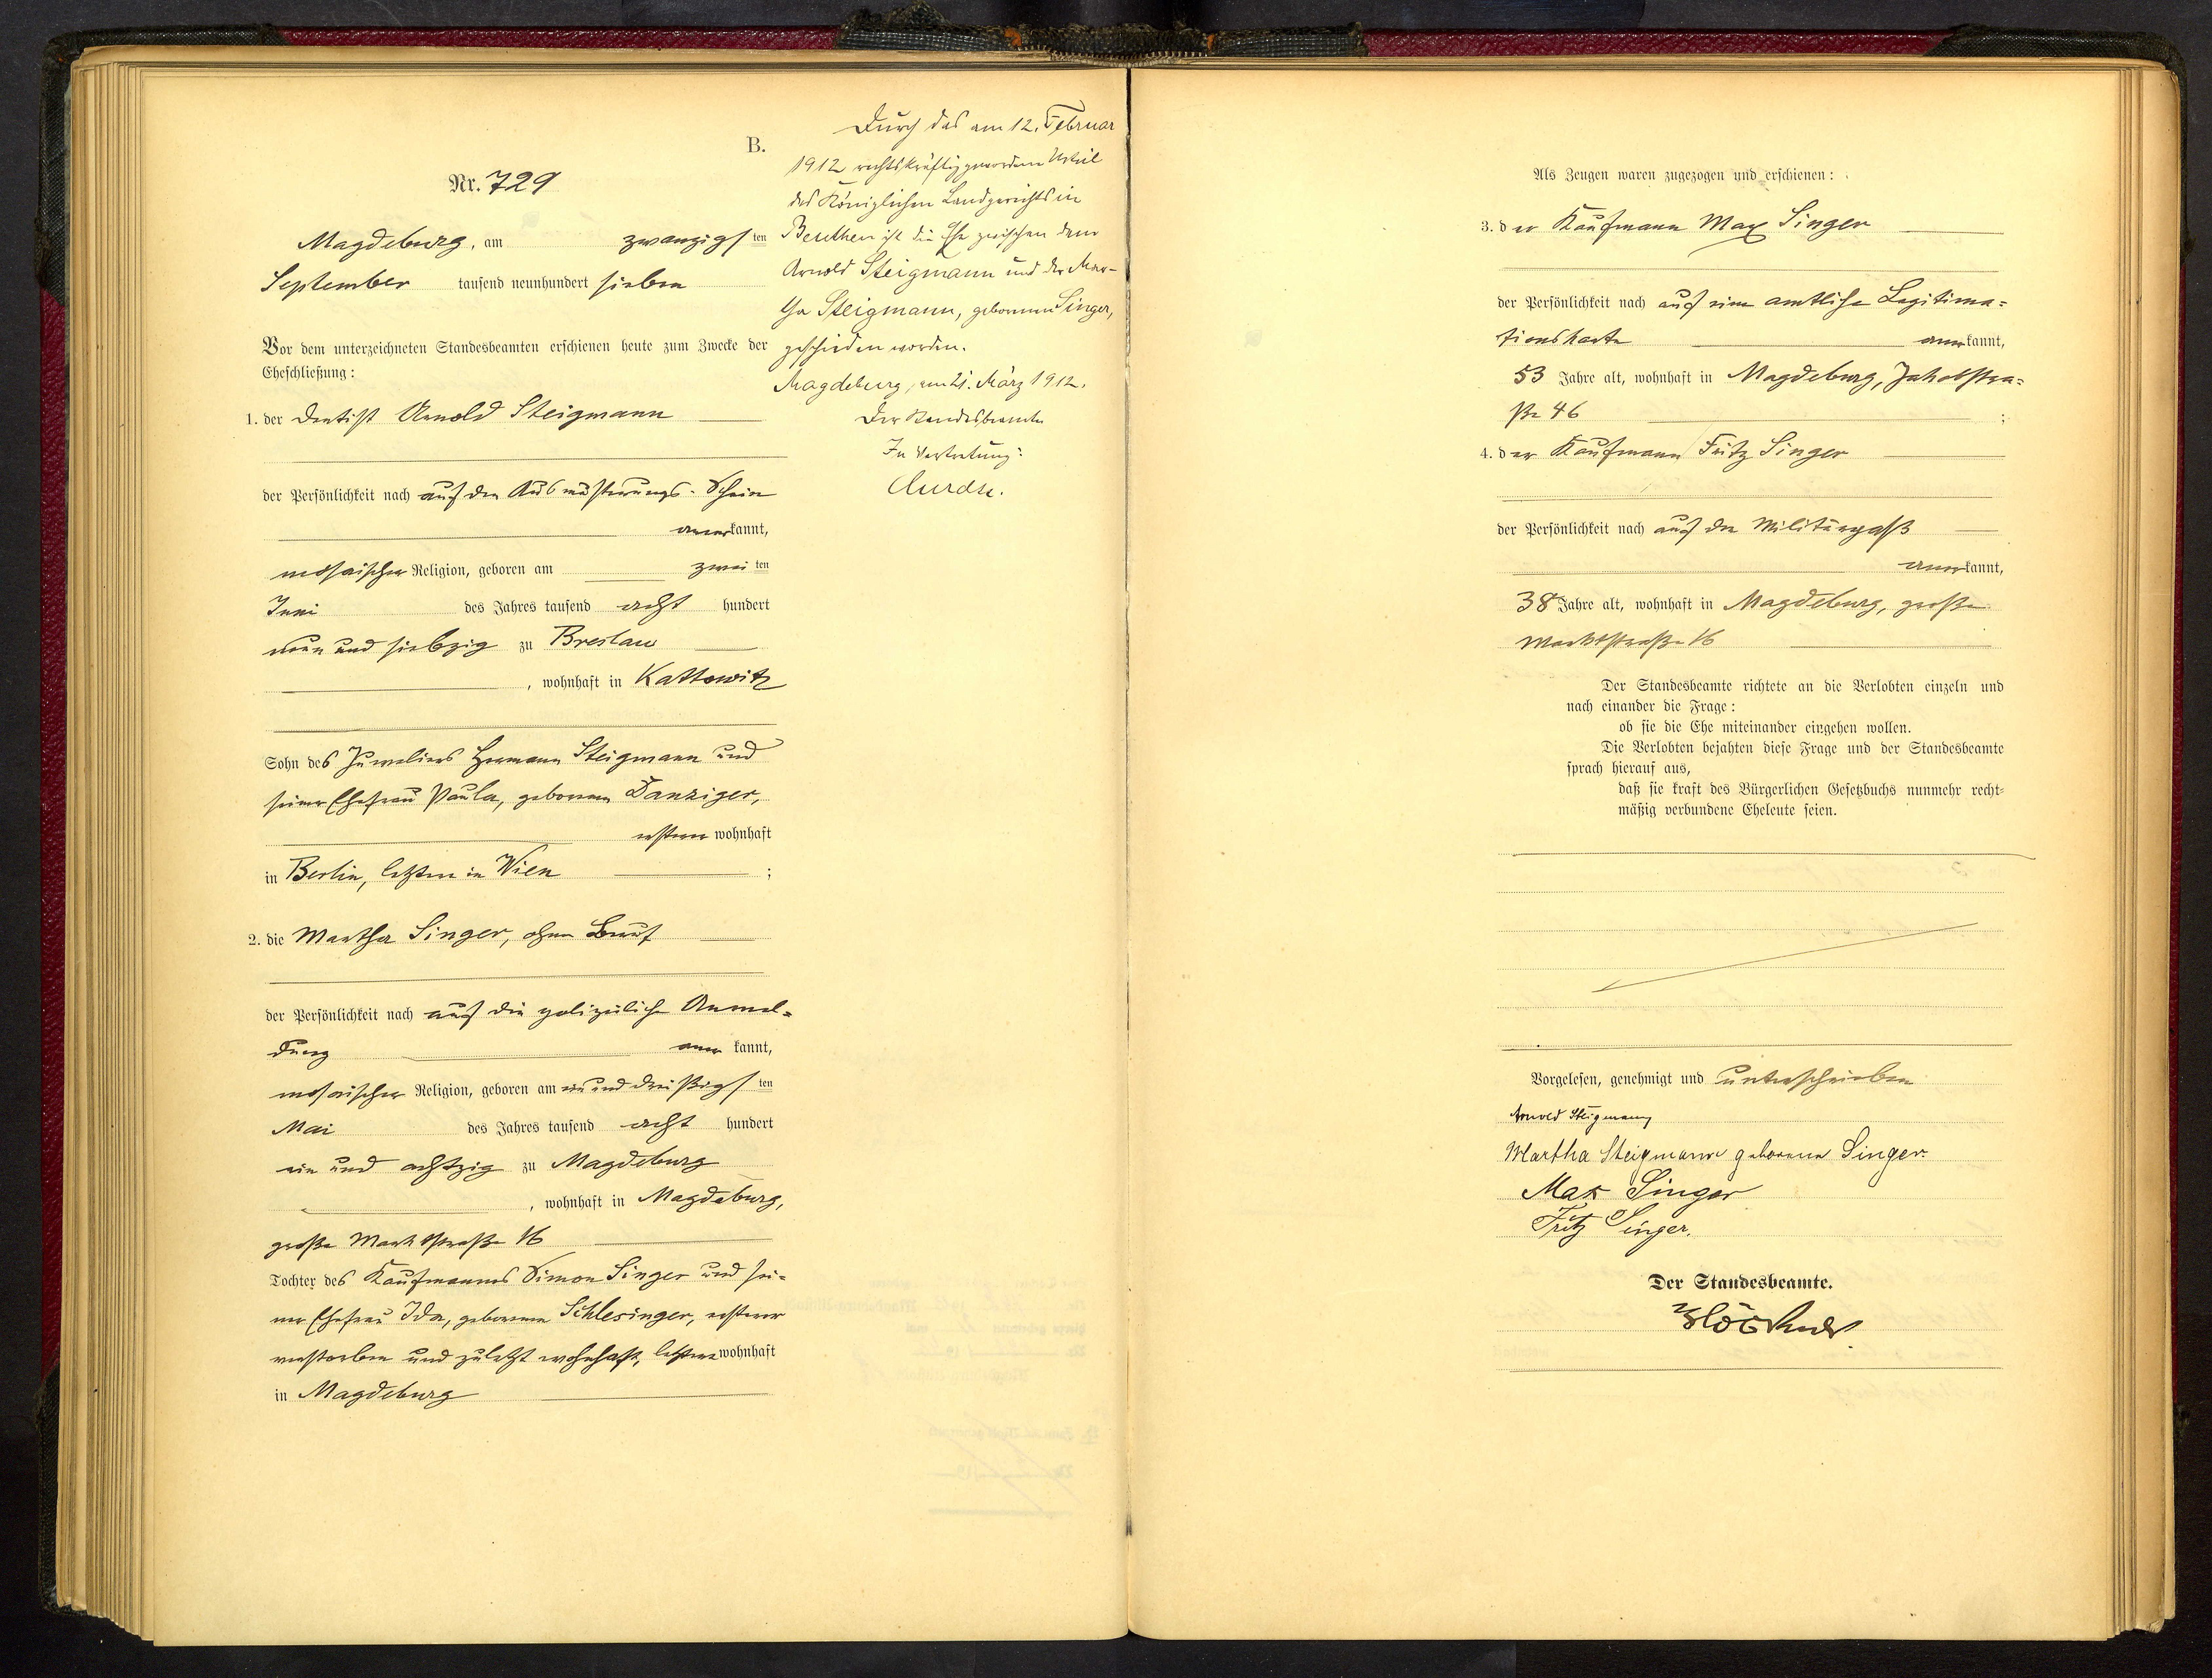 B.
Nr. 729
Magdeburg, am zwanzigsten
September tausend neunhundert sieben
Vor dem unterzeichneten Standesbeamten erschienen heute zum Zwecke der
Eheschließung:
1. der Dentist Arnold Steigmann
der Persönlichkeit nach auf den Ausmusterungs-Schein
anerkannt,
mosaischer Religion, geboren am zweiten
Juni des Jahres tausend acht hundert
neun und siebzig zu Breslau
, wohnhaft in Kattowitz
Sohn des Juweliers Hermann Steigmann und
seiner Ehefrau Paula, geborenen Danziger,
ersterer wohnhaft
in Berlin, letztere in Wien ;
2. die Martha Singer, ohne Beruf
der Persönlichkeit nach auf die polizeiliche Anmel-
dung anerkannt,
mosaischer Religion, geboren am ein und dreißigsten
Mai des Jahres tausend acht hundert
ein und achtzig zu Magdeburg
, wohnhaft in Magdeburg,
große Marktstraße 16
Tochter des Kaufmanns Simon Singer und sei-
ner Ehefrau Ida, geborenen Schlesinger, ersterer
verstorben und zuletzt wohnhaft, letztere wohnhaft
in Magdeburg
Durch das am 12. Februar
1912 rechtskräftig gewordene Urteil
des Königlichen Landgerichts in
Beuthen ist die Ehe zwischen dem
Arnold Steigmann und der Mar-
tha Steigmann, geborenen Singer,
geschieden worden.
Magdeburg, am 21. März 1912.
Der Standesbeamte
In Vertretung:
Als Zeugen waren zugezogen und erschienen:
3. der Kaufmann Max Singer
der Persönlichkeit nach auf eine amtliche Legitima-
tionskarte anerkannt,
53 Jahre alt, wohnhaft in Magdeburg, Jakobstra-
ße 46 ;
4. der Kaufmann Fritz Singer
der Persönlichkeit nach auf den Militärpaß
anerkannt,
38 Jahre alt, wohnhaft in Magdeburg, große
Marktstraße 16
Der Standesbeamte richtete an die Verlobten einzeln und
nach einander die Frage:
ob sie die Ehe miteinander eingehen wollen.
Die Verlobten bejahten diese Frage und der Standesbeamte
sprach hierauf aus,
daß sie kraft des Bürgerlichen Gesetzbuchs nunmehr recht-
mäßig verbundene Eheleute seien.
Vorgelesen, genehmigt und unterschrieben
Arnold Steigmann
Martha Steigmann geborene Singer.
Max Singer
Fritz Singer.
Der Standesbeamte.